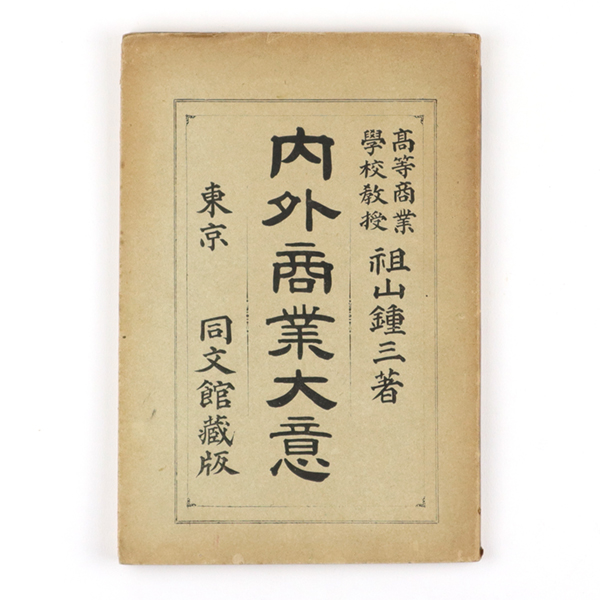 高等商業
學校教授
祖山鍾三著
内外商業大意
東京 同文館藏版